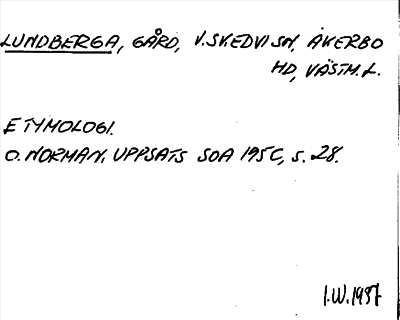 LUNDBERGA, GÅRD, V. SKEDVI SN, ÅKERBO
HD, VÄSTM. L.
ETYMOLOGI.
O. NORMAN. UPPSATS SOA 1950, s. 28.
I.W. 1987